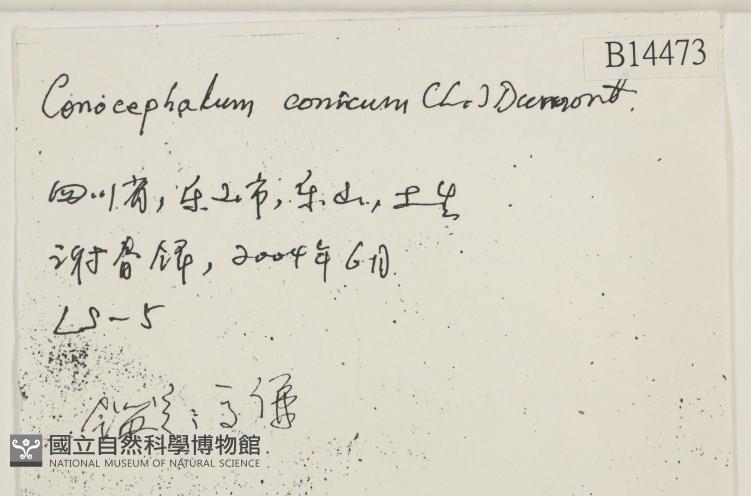 B14473
Conocephalum conicum (L.) Dumort.
四川省, 乐山市, 乐山, 土生
谢 2004年6月
LS-5
國立自然科學博物館
NATIONAL MUSEUM OF NATURAL SCIENCE